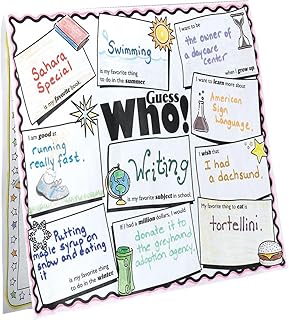 Sahara
Special
is my favorite book.
Swimming
is my favorite thing
to do in the summer.
I want to be
the owner of
a daycare
center
when I grow up
I am good at
running
really fast.
Guess
Who!
I want to learn more about
American
Sign
Language.
Writing
is my favorite subject in school.
I wish that
I had
a dachsund.
Putting
maple syrup on
snow and eating
it
is my favorite thing
to do in the winter
If I had a million dollars, I would
donate it to
the greyhound
adoption agency.
My favorite thing to eat is
tortellini.